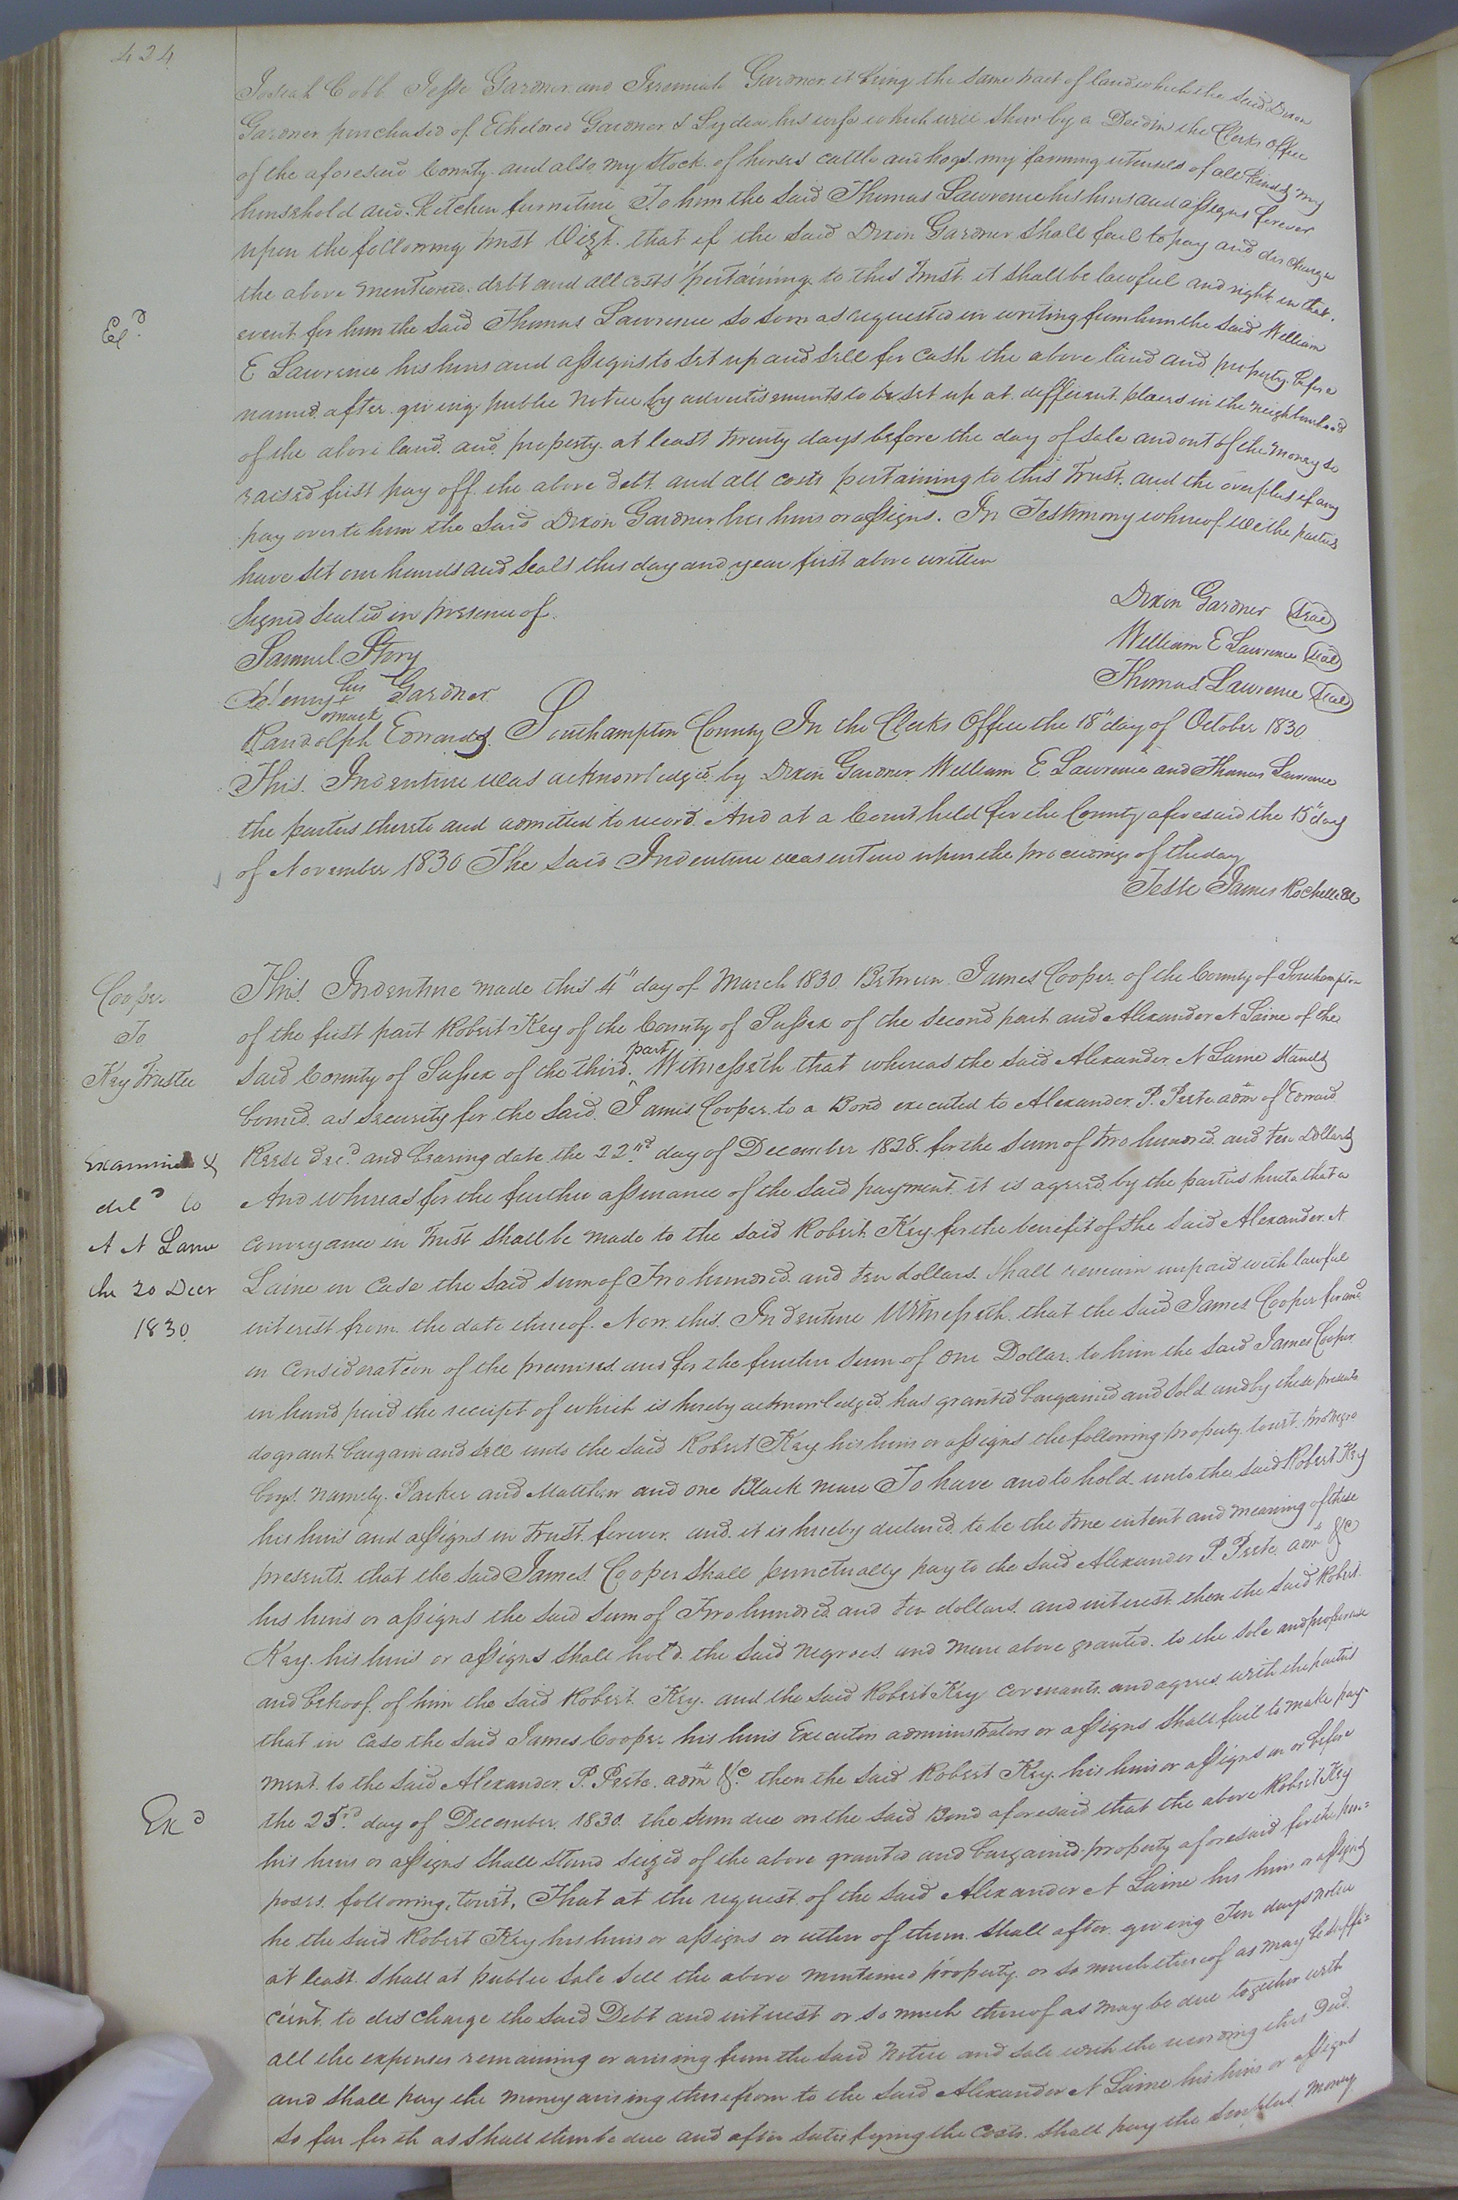 424
Josiah Cobb Jesse Gardner and Jeremiah Gardner it being the same tract of land which the said Dixon
Gardner purchased of Etheldred Gardner & Lydia his wife which will shew by a Deed in the Clerks office
of the aforesaid County and also my stock of horses cattle and hogs my farming utensils of all kinds my
household and Kitchen furniture To him the said Thomas Lawrence his heirs and assigns forever
upon the following trust Vizt. that if the said Dixon Gardner shall fail to pay and discharge
the above mentioned debt and all costs pertaining to this trust it shall be lawful and right in that
event for him the said Thomas Lawrence so soon as requested in writing from him the said William
E Lawrence his heirs and assigns to set up and sell for cash the above land and property before
named after giving public notice by advertisements to be set up at different places in the neighbourhood
of the above land and property at least twenty days before the day of sale and out of the money so
raised first pay off the above debt and all costs pertaining to this trust and the overplus if any
pay over to him the said Dixon Gardner his heirs or assigns. In Testimony whereof We the parties
have set our hands and seals this day and year first above written
Signed sealed in presence of
Dixon Gardner Seal
Samuel Story
William E Lawrence Seal
Henry his + mark Gardner
Thomas Lawrence Seal
Randolph Edwards
Southampton County In the Clerks Office the 18" day of October 1830
This Indenture was acknowledged by Dixon Gardner William E Lawrence and Thomas Lawrence
the parties thereto and admitted to record And at a Court held for the County aforesaid the 15" day
of November 1830 The said Indenture was entered upon the proceedings of the day
Teste James Rochelle Cl
Cooper
To
Key Trustee
Examined &
deld to
A N Laine
the 20 Decr
1830
This Indenture made this 4" day of March 1830 Between James Cooper of the County of Southampton
of the first part Robert Key of the County of Sussex of the second part and Alexander N Laine of the
said County of Sussex of the third part Witnesseth that whereas the said Alexander N Laine stands
bound as security for the said James Cooper to a Bond executed to Alexander P. Peete adm of Edward
decd and bearing date the 22nd day of December 1828 for the sum of two hundred and ten dollars
And whereas for the further assurance of the said payment it is agreed by the parties hereto that a
conveyance in trust shall be made to the said Robert Key for the benefit of the said Alexander N
Laine in case the said sum of Two hundred and ten dollars shall remain unpaid with lawful
interest from the date thereof Now this Indenture Witnesseth that the said James Cooper for and
in consideration of the premises and for the further sum of One Dollar to him the said James Cooper
in hand paid the receipt of which is hereby acknowledged has granted bargained and sold and by these presents
do grant bargain and sell unto the said Robert Key his heirs or assigns the following property towit two negro
boys namely Parker and Matthew and one Black mare To have and to hold unto the said Robert Key
his heirs and assigns in trust forever and it is hereby declared to be the true intent and meaning of these
presents that the said James Cooper shall punctually pay to the said Alexander P. Peete adm &c
his heirs or assigns the said sum of Two hundred and ten dollars and interest then the said Robert
Key his heirs or assigns shall hold the said negroes and mare above granted to the sole and proper use
and behoof of him the said Robert Key and the said Robert Key covenants and agrees with the parties
that in case the said James Cooper his heirs Executors administrators or assigns shall fail to make pay-
ment to the said Alexander P. Peete adm &c then the said Robert Key his heirs or assigns on or before
Exd
the 25rd day of December 1830 the sum due on the said Bond aforesaid that the above Robert Key
his heirs or assigns shall stand seized of the above granted and bargained property aforesaid for the pur=
poses following, towit, That at the request of the said Alexander N Laine his heirs or assigns
he the said Robert Key his heirs or assigns or either of them shall after giving Ten days notice
at least shall at public sale sell the above mentioned property or so much thereof as may be suffi=
cient to discharge the said Debt and interest or so much thereof as may be due together with
all the expenses remaining or arising from the said notice and sale with the recording this Deed
and shall pay the money arising therefrom to the said Alexander N Laine his heirs or assigns
so far forth as shall then be due and after satisfying the costs shall pay the surplus money